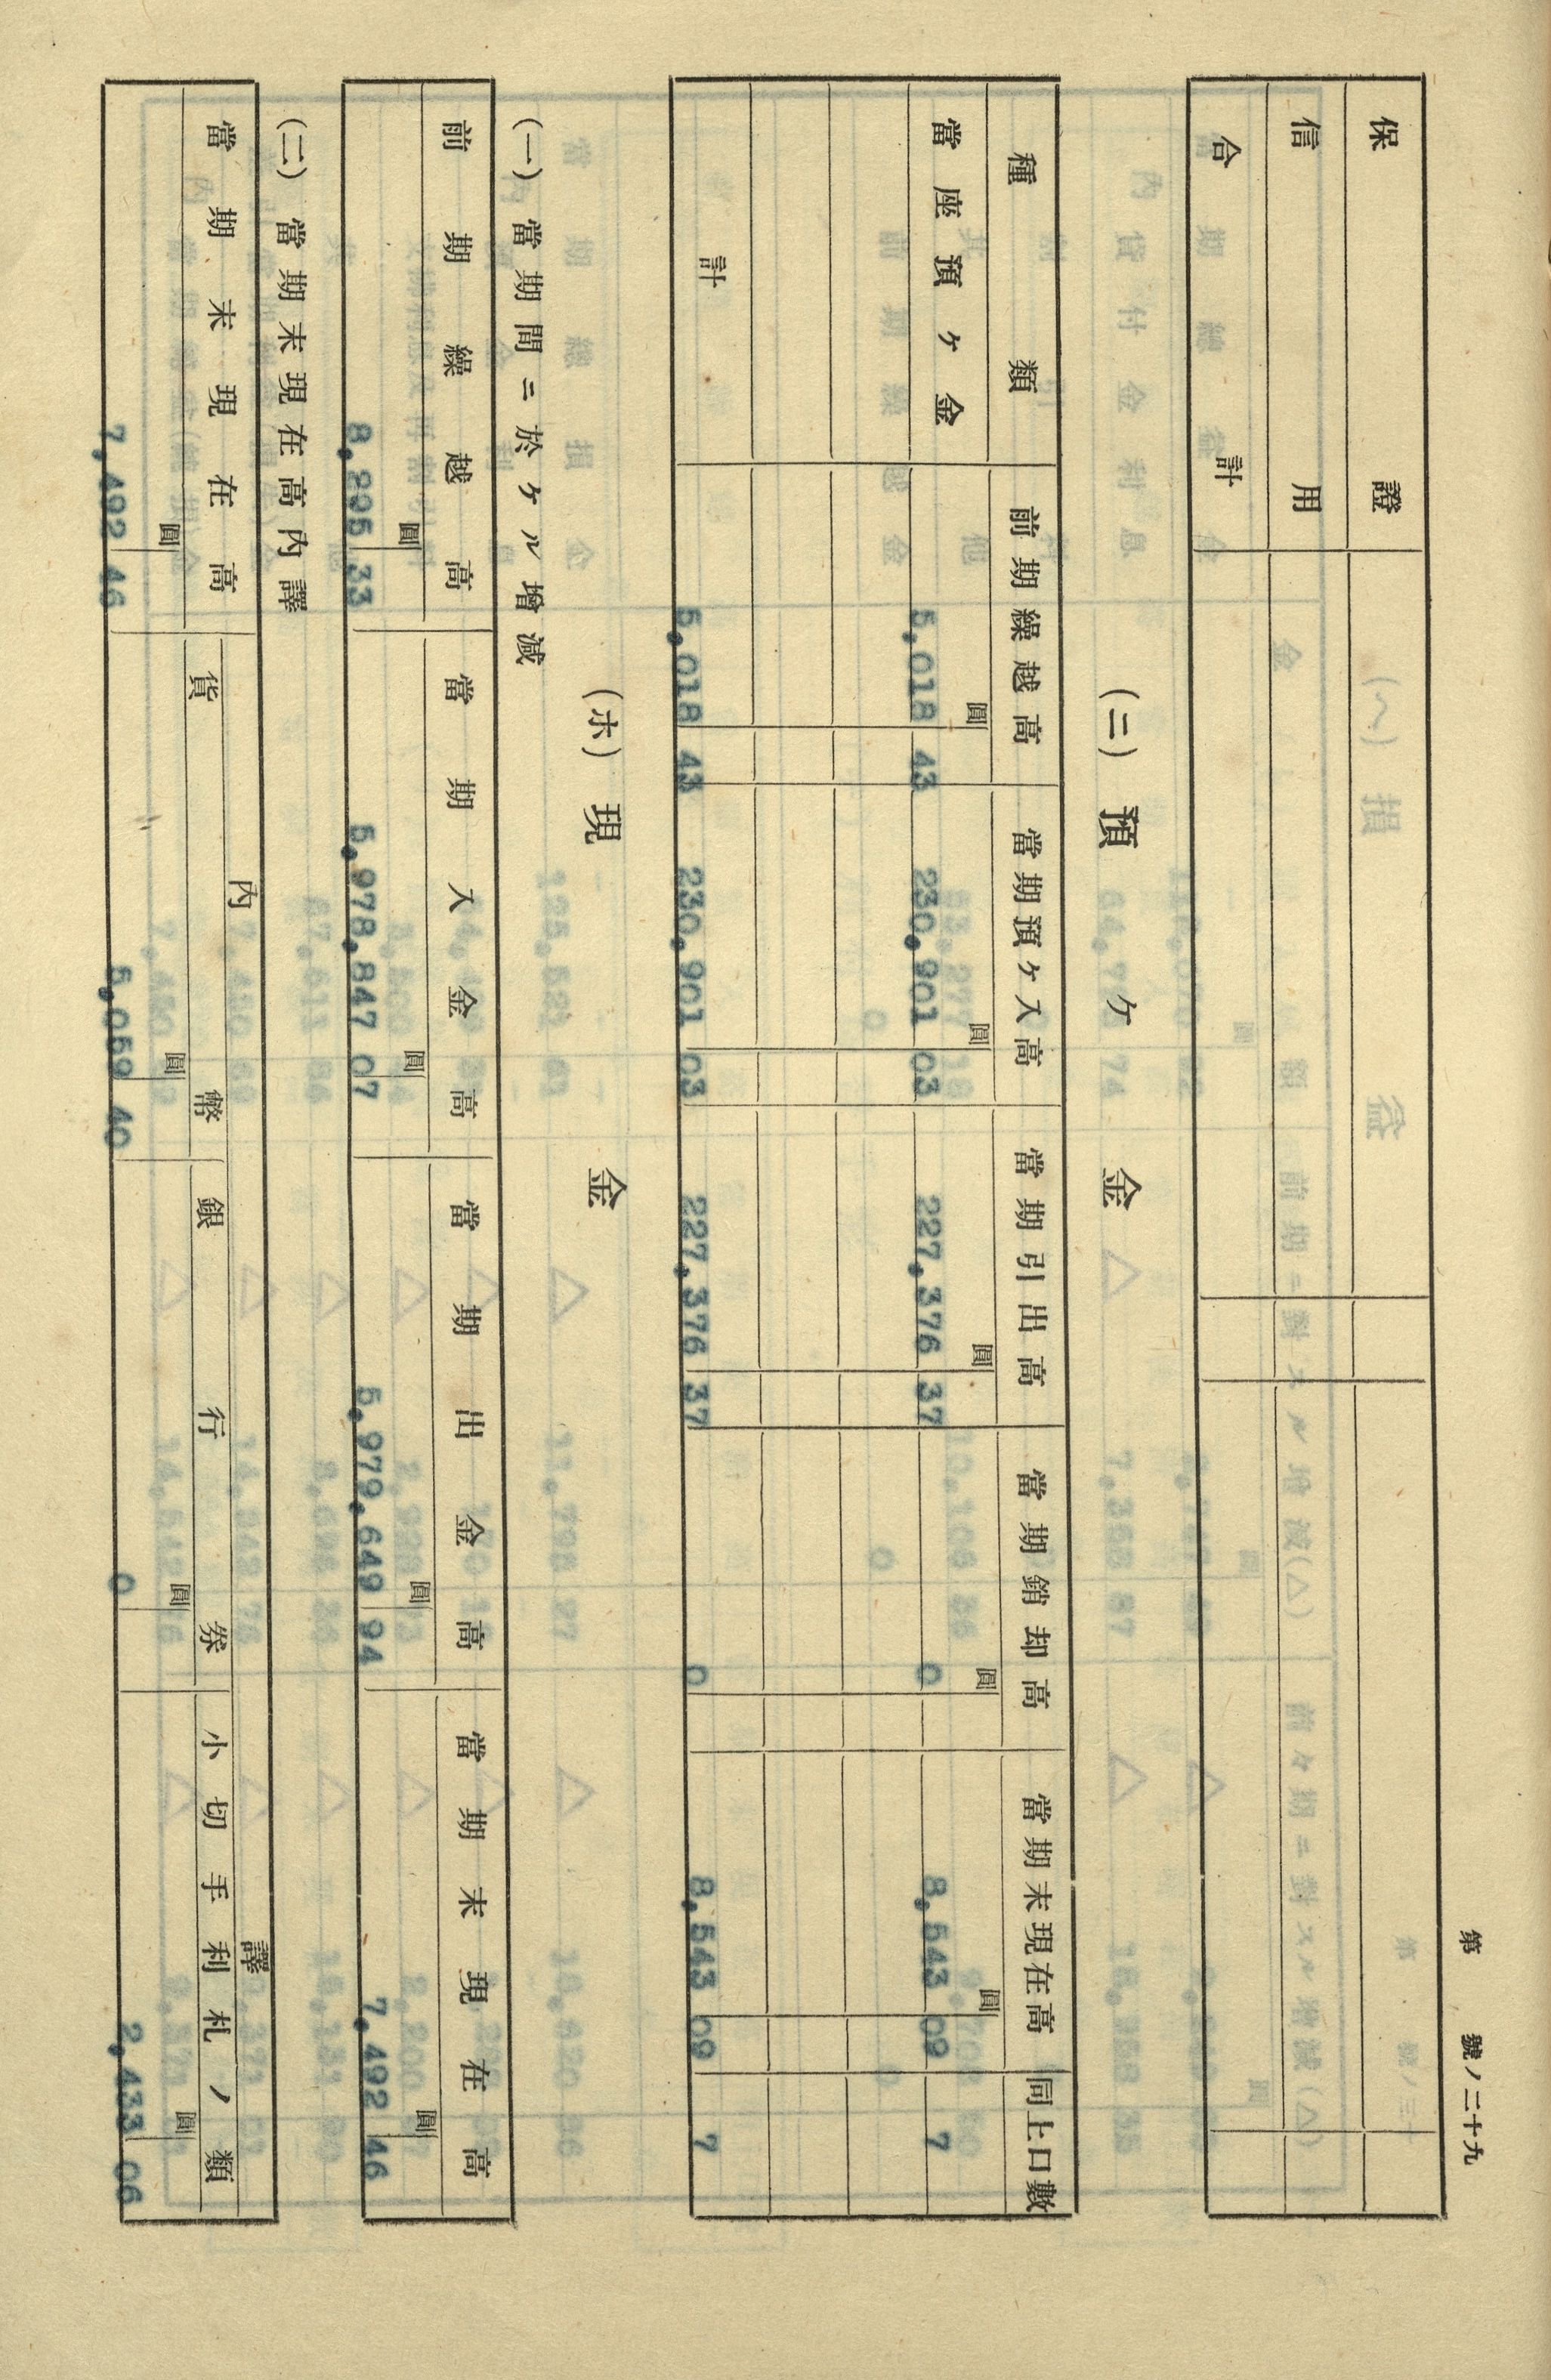 第 號ノ二十九
保證
信用
合計
(ニ) 預ケ金
種類 前期繰越高 當期預ケ入高 當期引出高 當期銷却高 當期末現在高 同上口數
圓 圓 圓 圓 圓
當座預ケ金 5,018 43 230,901 03 227,376 37 0 8,543 09 7
計 5,018 43 230,901 03 227,376 37 0 8,543 09 7
(ホ) 現金
(一) 當期間ニ於ケル增減
前期繰越高 當期入金高 當期出金高 當期末現在高
圓 圓 圓 圓
8,295 33 5,978,847 07 5,979,649 94 7,492 46
(二) 當期末現在高內譯
當期末現在高 內譯
貨幣 銀行券 小切手利札ノ類
圓 圓 圓 圓
7,492 46 5,059 40 0 2,433 06